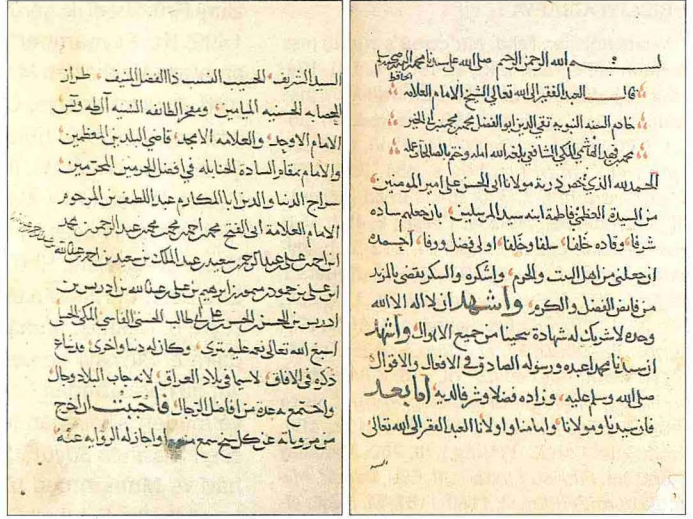 بسم الله الرحمن الرحيم صلى الله على سيدنا محمد وآله وصحبه وسلم
قال العبد الفقير الى الله تعالى الشيخ الامام العلامه الحافظ
خادم السنه النبويه تقي الدين ابو الفضل محمد بن محمد بن ابي الخير
محمد بن فهد الهاشمي المكي الشافعي بلغه الله امله وختم بالصالحات عمله
الحمد لله الذي خص ذرية مولانا ابي الحسن علي امير المومنين
من السيدة العظمى فاطمة ابنه سيد المرسلين بان جعلهم ساده
شرفا وقاده خلفا سلفا وخلفا اولي فضل ووفا احمده
ان جعلني من اهل البيت والحرم واشكره والشكر يقتضي المزيد
من فايض الفضل والكرم واشهد ان لا اله الا الله
وحده لا شريك له شهادة تنجينا من جميع الاهوال واشهد
ان سيدنا محمدا عبده ورسوله الصادق في الافعال والاقوال
صلى الله وسلم عليه وزاده فضلا وشرفا لديه اما بعد
فان سيدنا ومولانا وامامنا واولانا العبد الفقير الى الله تعالى
السيد الشريف الحسيب النسيب ذا الفضل المنيف طراز
العصابه الحسنيه الميامين وفخر الطائفه السنيه آل طه ويس
الامام الاوحد والعلامه الامجد قاضي البلدين المعظمين
والامام بمقام السادة الحنابله في افضل الحرمين المحترمين
سراج الدنيا والدين ابا المكارم عبد اللطيف بن المرحوم
الامام العلامة ابي الفتح محمد بن احمد بن محمد بن محمد بن عبد الرحمن بن محمد
ابن احمد بن علي بن عبد الرحمن بن سعيد بن عبد الملك بن سعيد بن احمد بن عبد الله
ابن علي بن حمود بن ميمون بن ابراهيم بن علي بن عبد الله بن ادريس بن
ادريس بن الحسن بن الحسن بن علي بن ابي طالب الحسني الفاسي المكي الحنبلي
اسبغ الله تعالى نعمه عليه تترى وكان له دنيا واخرى قد شاع
ذكره في الافاق لا سيما في بلاد العراق لانه جاب البلاد وجال
واجتمع بعدة من افاضل الرجال فاحببت ان اخرج
من مروياته عن كل من جمع منهم واجاز له الروايه عنه